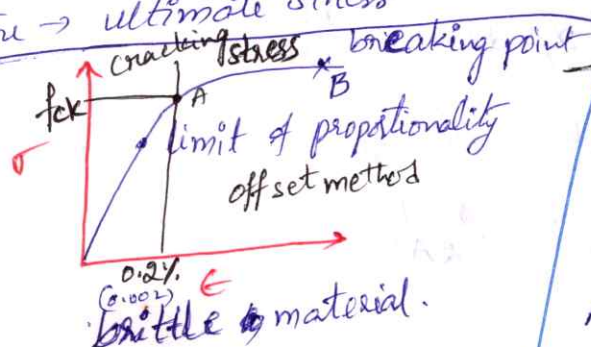 → ultimate stress
cracking stress breaking point
fck A B
limit of proportionality
σ
offset method
0.2%
(0.002) ϵ
brittle material.